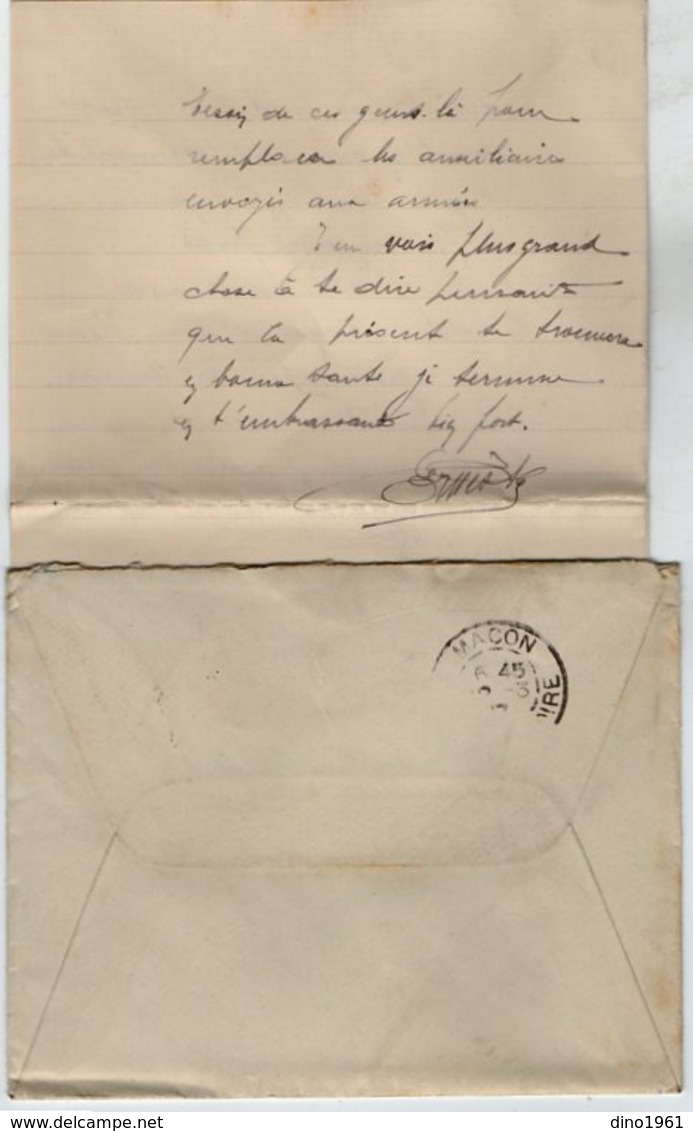 besoin de ces gens-là pour
remplacer les auxiliaires
envoyés aux armées
vois plus grand
chose à te dire pensant
que la présent te trouvera
en bonne santé je termine
en t'embrassant bien fort.
Ernest
MACON
6 45
IRE
delcampe.net
dino1961